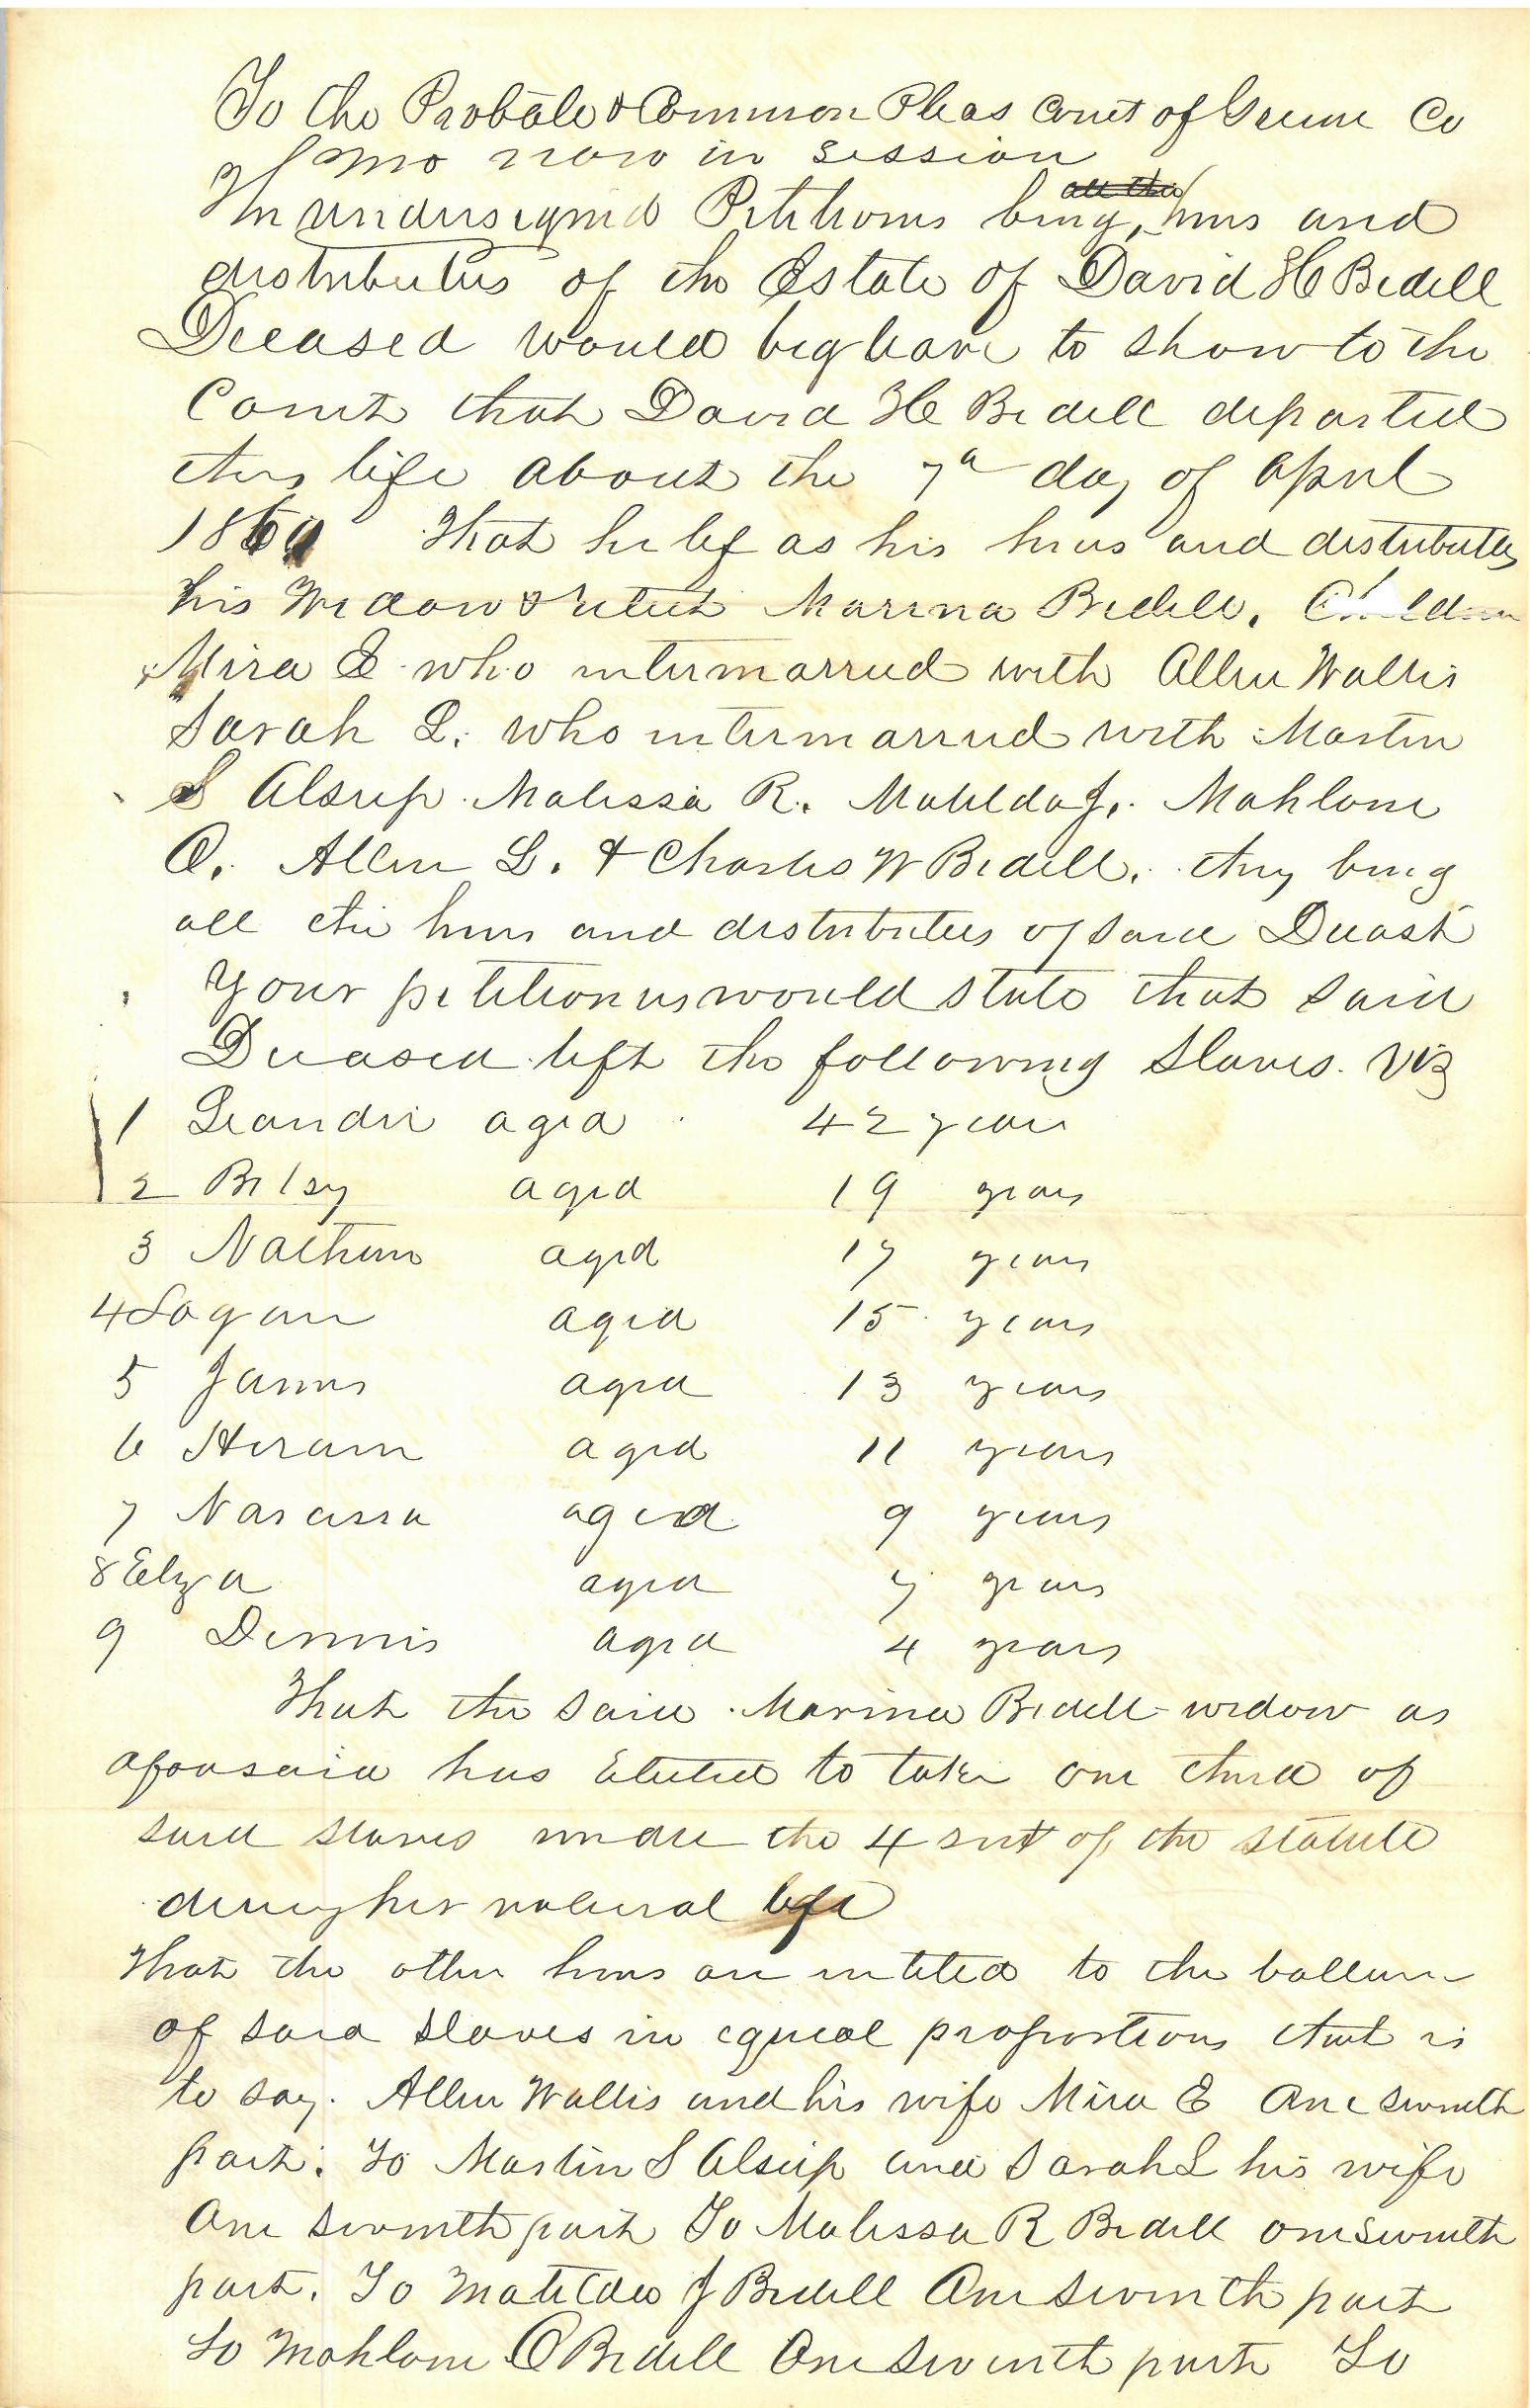 To the Probate & Common Pleas Court of Greene Co
of Mo now in Session
The undersigned Petitioners being, heirs and
distributees of the Estate of David H Bedell
Deceased would beg leave to show to the
Court that David H Bedell departed
this life about the 7th day of April
186
That he lef as his heirs and distributees
his Widow & relict Marina Bedell. Children
Mira E who intermarried with Allen Wallis
Sarah L. who intermarried with Martin
S Alsup. Malissa R. Matilda J. Mahlone
O. Allen L. & Charles W Bedell. they being
all the heirs and distributees of said Deceast
Your petitioners would state that said
Deceased left the following Slaves. Viz
1 Leander aged 42 years
2 Betsy aged 19 years
3 Nathen aged 17 years
4 Logan aged 15 years
5 James aged 13 years
6 Hiram aged 11 years
7 Narcissa aged 9 years
8 Elza aged 7 years
9 Dennis aged 4 years
That the said Marina Bedell widow as
aforesaid has Elected to take one third of
said slaves under the 4 sect of the statute
during her natural life
That the other heirs are intitled to the ballance
of said slaves in equeal proportions that is
to say. Allen Wallis and his wife Mira E One seventh
part. To Martin S Alsup and Sarah L his wife
One seventh part To Malissa R Bedell one seventh
part. To Matilda J Bedell One seventh part
To Mahlone O Bedell One seventh part To